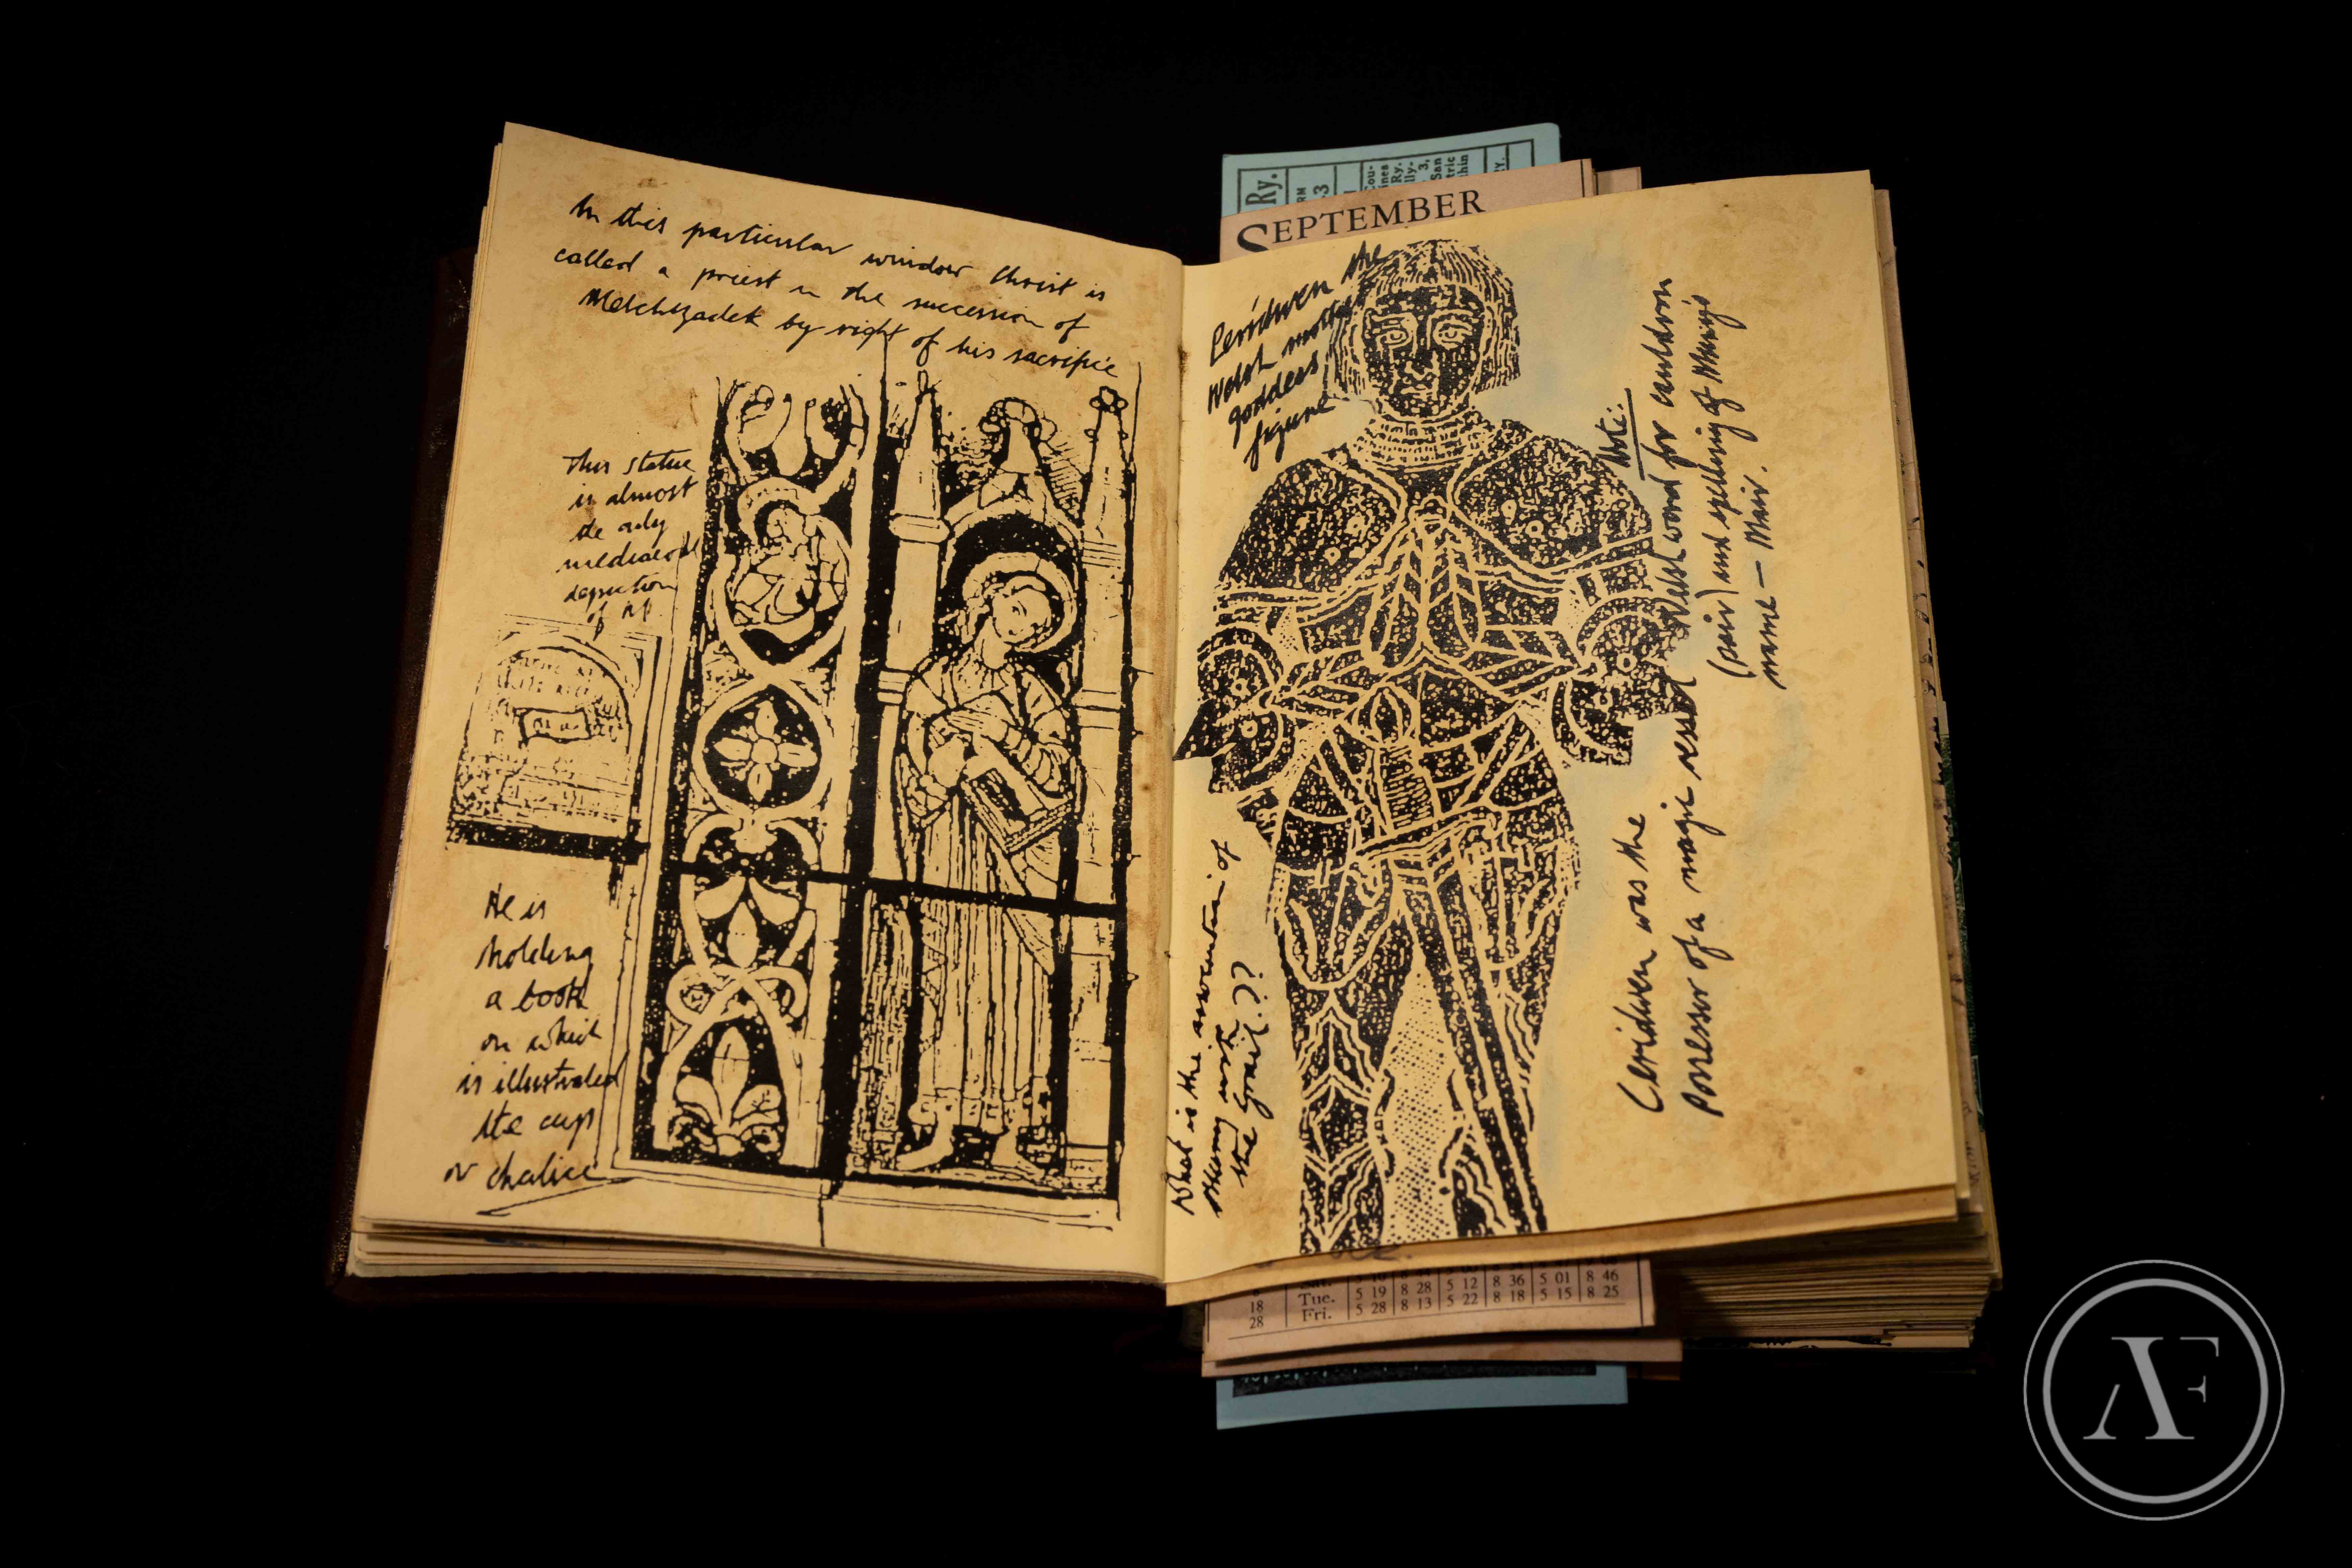 In this particular window Christ is
called a priest in the succession of
Melchizadek by right of his sacrifice
This statue
is almost
the only
mediaeval
depiction
of it
He is
holding
a book
on which
is illustrated
the cup
or chalice
Ry.
SEPTEMBER
Ceridwen the
Welsh mother
goddess
figure
Note:
Welsh word for cauldron
(pair) and spelling of Mary's
name — Mair.
Ceridwen was the
Possessor of a magic vessel
What is the association of
Mary with
the grail???
18 Tue. 5 19 8 28 5 12 8 36 5 01 8 46
28 Fri. 5 28 8 13 5 22 8 18 5 15 8 25
AF